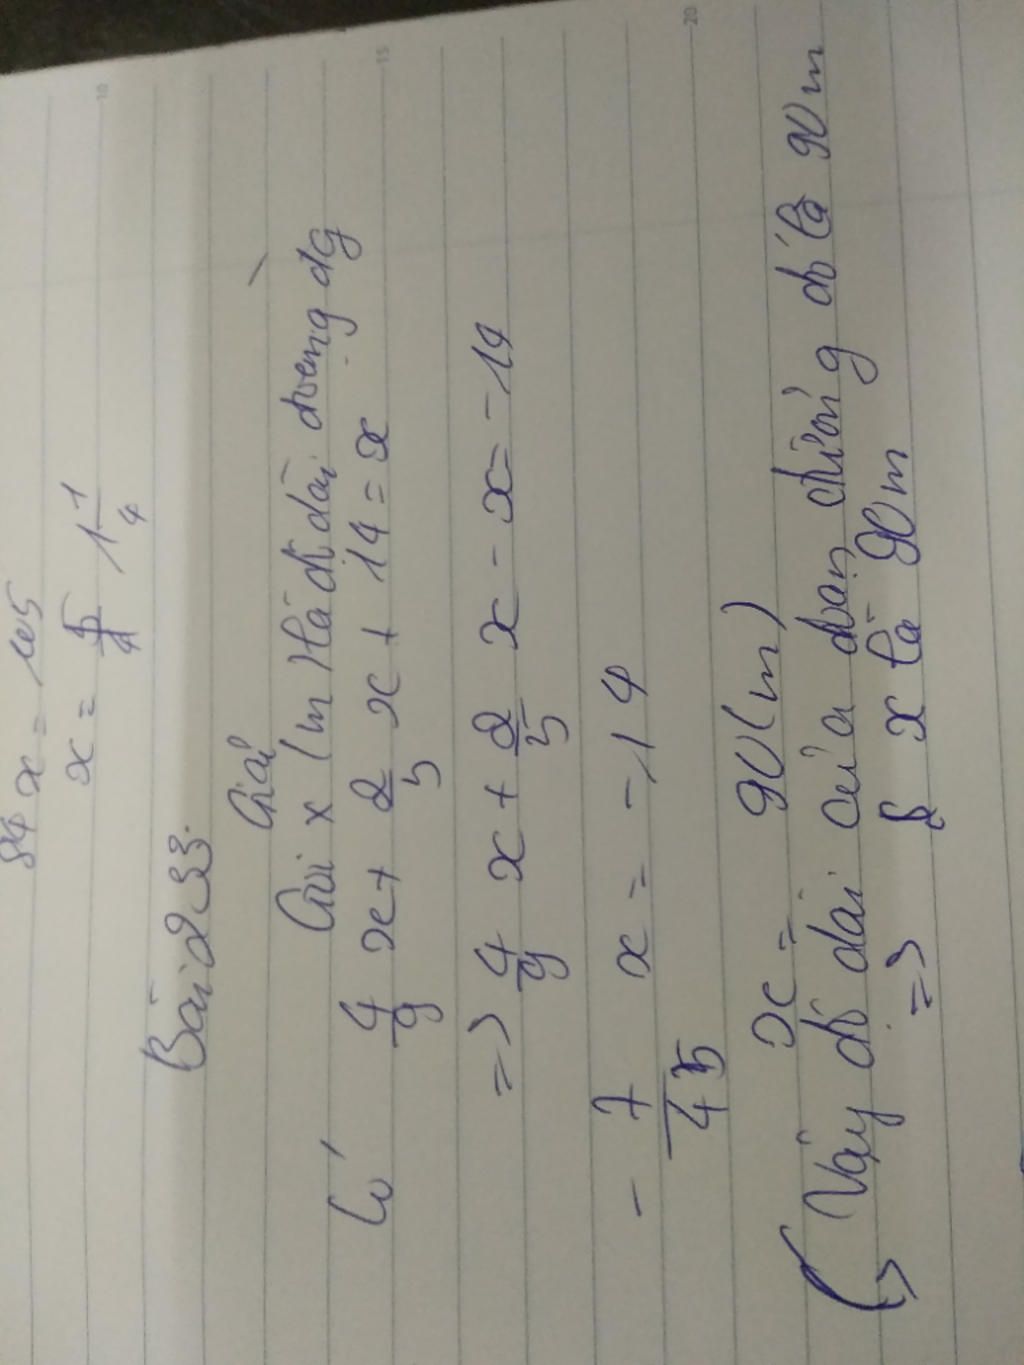 84 x = 105
x = 5/4 1 1/4
Bài 233.
Giải
Gọi x (m) là độ dài đường đó
Có 4/9 x + 2/5 x + 14 = x
=> 4/9 x + 2/5 x - x = -14
- 7/45 x = -14
x = 90 (m)
Vậy độ dài của đoạn đường đó là 90 m
=> x là 90 m
10
15
20